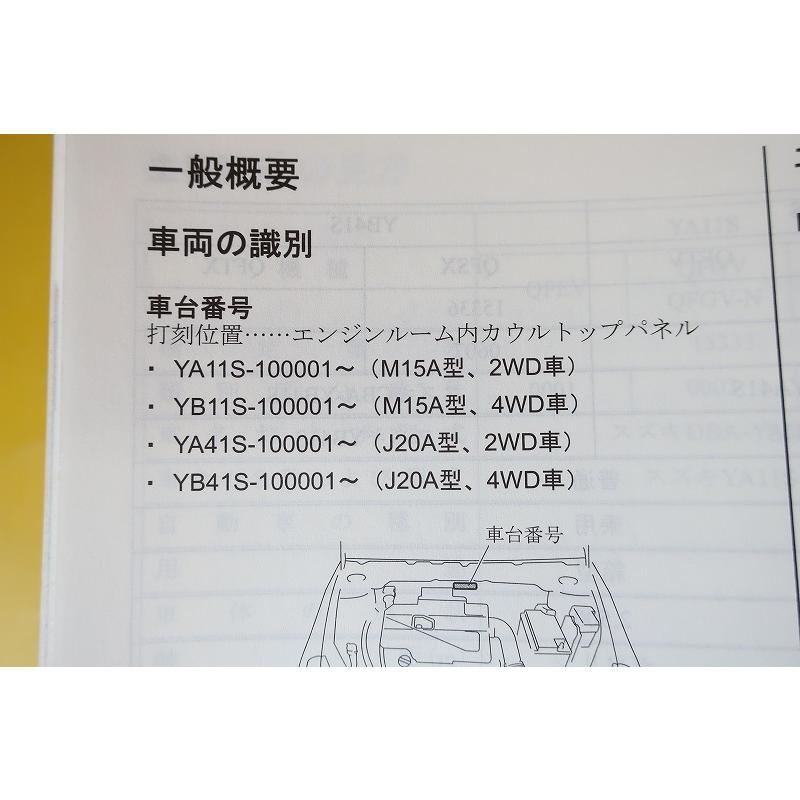 一般概要
車両の識別
車台番号
打刻位置……エンジンルーム内カウルトップパネル
・ YA11S-100001〜（M15A型、2WD車）
・ YB11S-100001〜（M15A型、4WD車）
・ YA41S-100001〜（J20A型、2WD車）
・ YB41S-100001〜（J20A型、4WD車）
車台番号